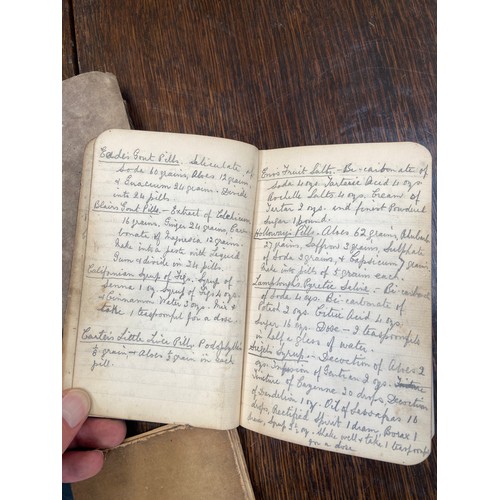 Eade's Gout Pills. Siliculate of
Soda 60 grains, Aloes 12 grains
& Guaiacum 24 grains. Divide
into 24 pills.
Blairs Gout Pills. - Extract of Colchicum
16 grains, Ginger 24 grains, Car-
bonate of Magnesia 12 grains.
Make into a paste with liquid
Gum & divide in 24 pills.
Californian Syrup of Figs. - Syrup of
Senna 1 oz. Syrup of Figs 4 ozs
& Cinnamon Water 3 ozs. Mix &
take 1 teaspoonful for a dose.
Carter's Little Live Pills, Podophyllin
grain & Aloes grain in each
pill.
Enos Fruit Salts. - Bi-carbonate of
Soda 4 ozs. Tartaric Acid 4 ozs
Rochelle Salts 4 ozs. Cream of
Tarter 2 ozs. and finest Powdered
Sugar 1 pound.
Holloway's Pills. - Aloes 62 grains, Rhubarb
27 grains, Saffron 2 grains, Sulphate
of Soda 3 grains, & Capsicum 7 grains,
Make into pills of grains each.
Lamplough's Pyretic Saline - Bi-carbonate
of Soda 4 ozs. Bi-carbonate of
Potass 2 ozs. Citric Acid 4 ozs.
Sugar 16 ozs. Dose - 2 teaspoonfuls
in half a glass of water.
Siegels Syrup. - Decoction of Aloes 2
ozs. Infusion of Gentian 3 ozs.
Tincture of Cayenne 20 drops, Decoction
of Dandelion 1 oz. Oil of Sassafras 16
drops, Rectified Spirit 1 dram, Borax 1
Syrup 3½ oz. Shake well & take 1 teaspoonful
for a dose